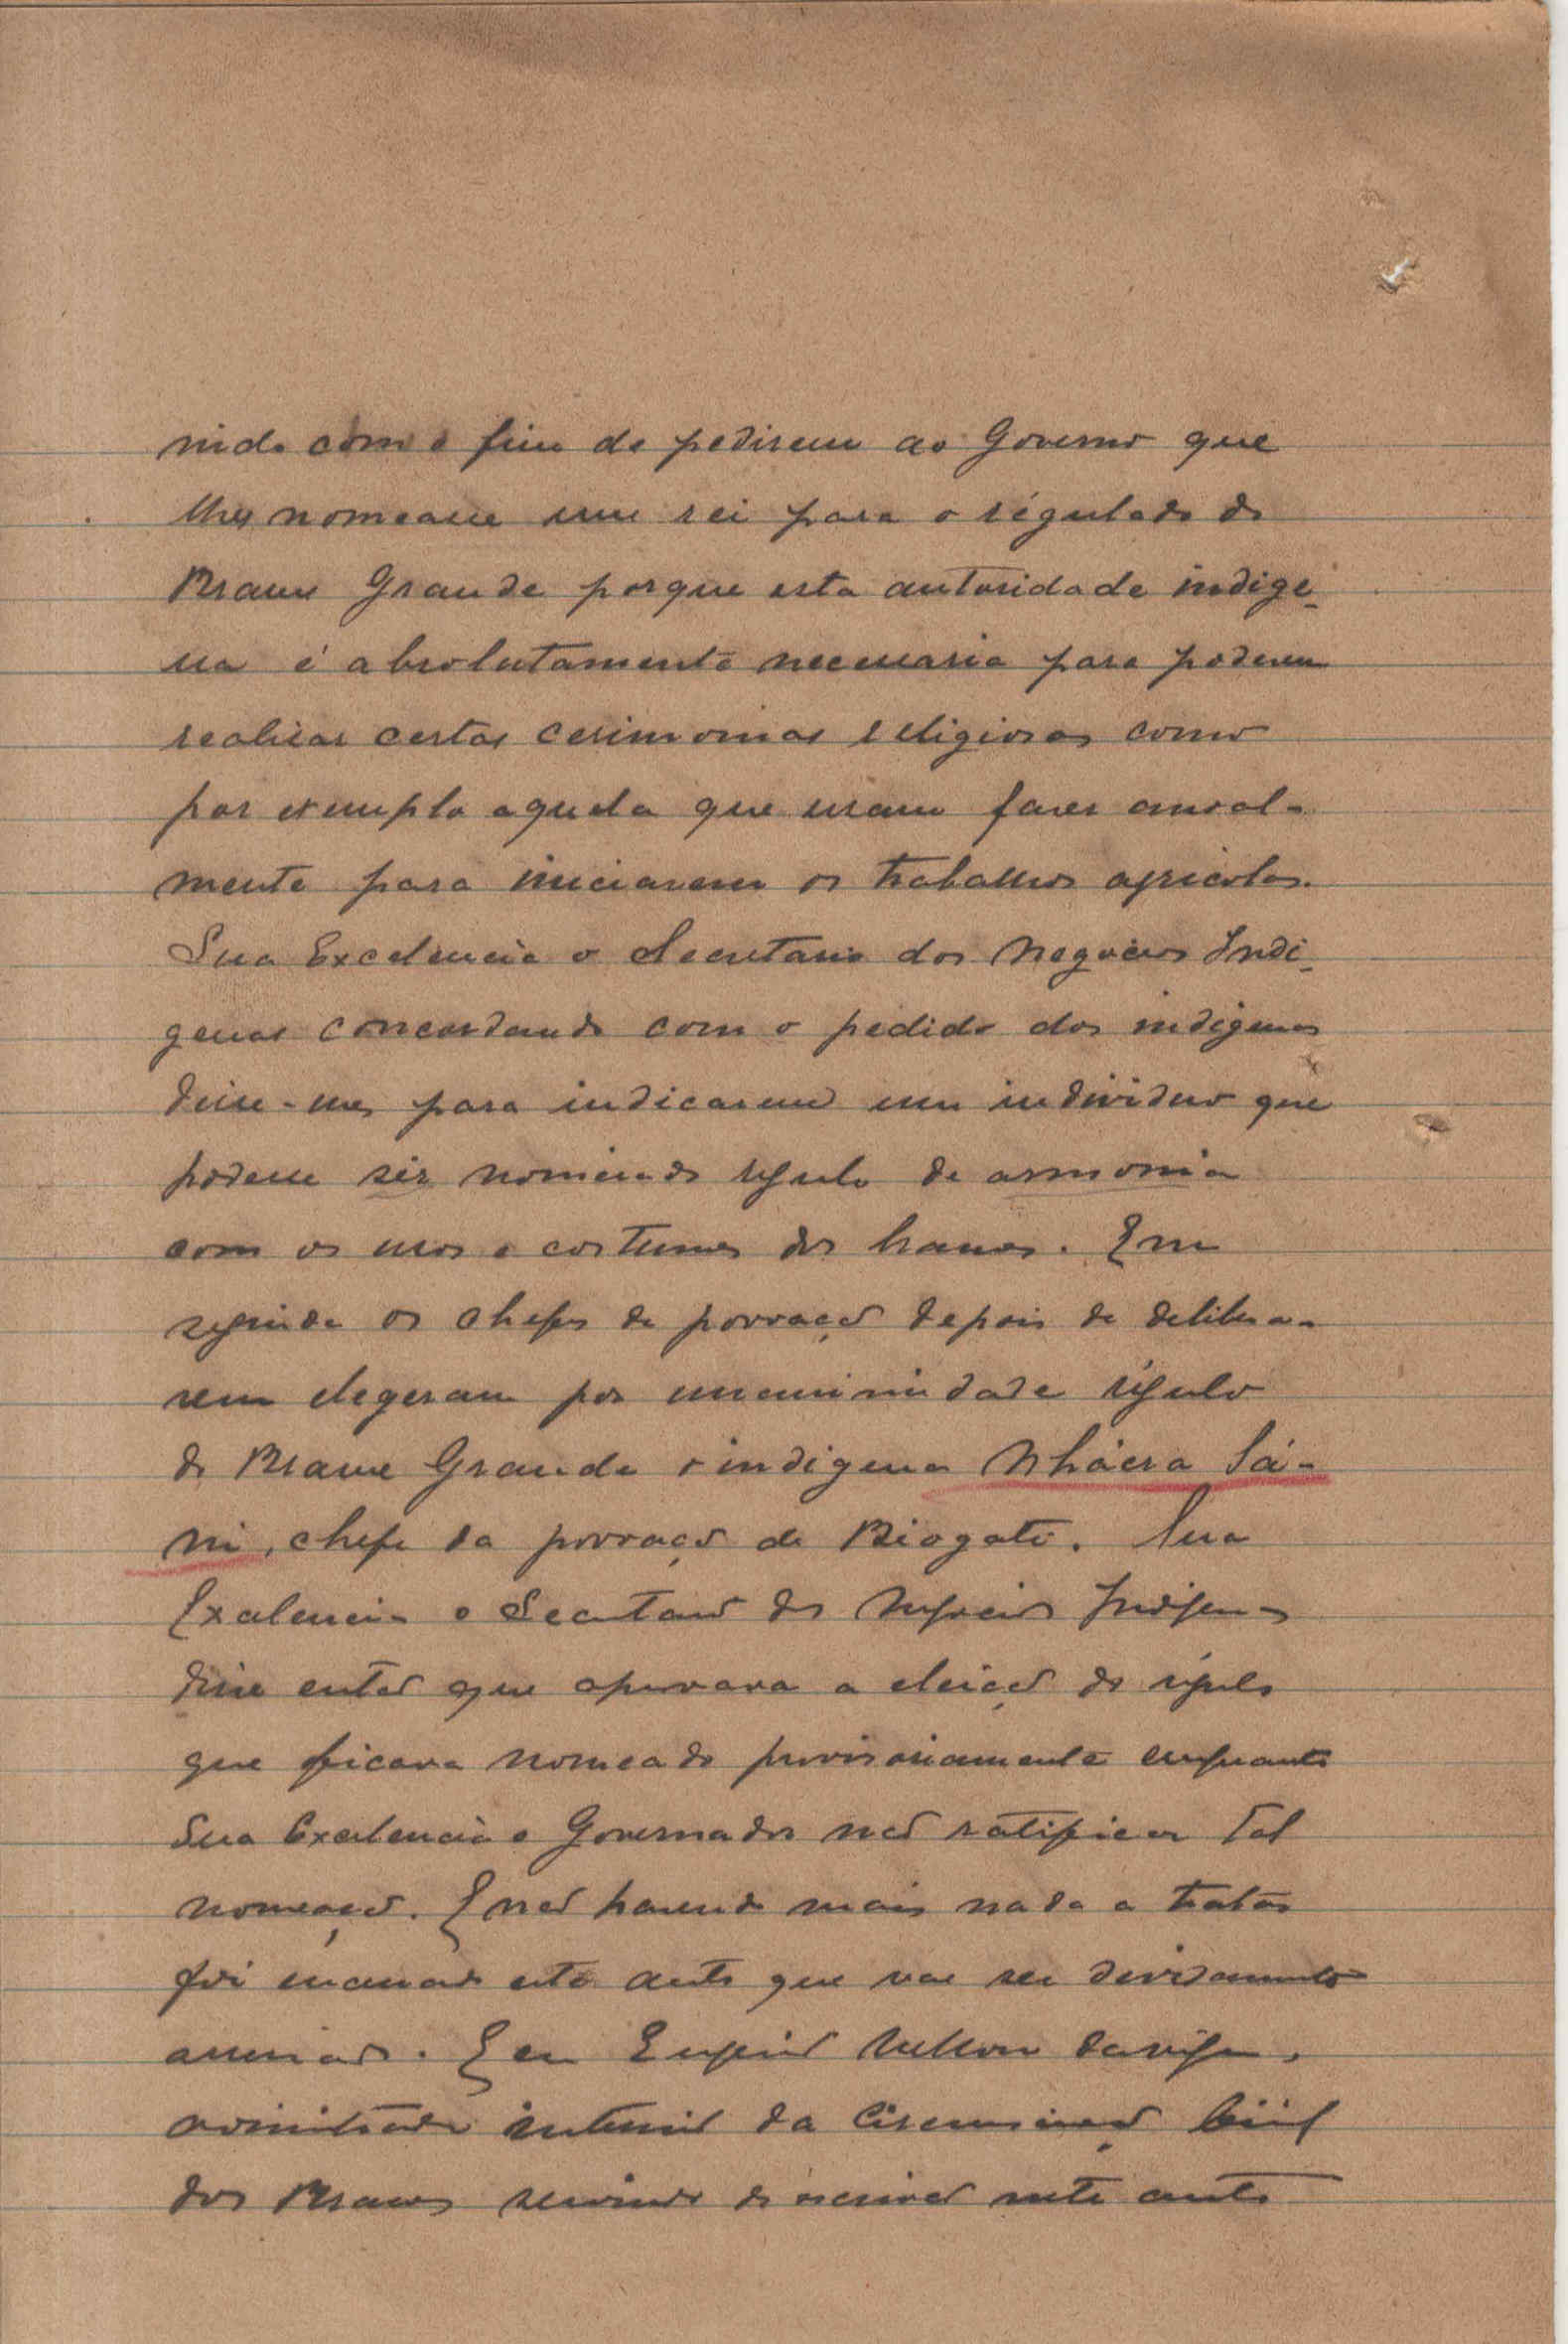 nido com o fim de pedirem ao Governo que
lhes nomeasse um rei para o régulado de
Brame Grande porque esta autoridade indige-
na é absolutamente necessaria para poderem
realisar certas cerimonias religiosas como
por exemplo aquela que usam fazer anual-
mente para iniciarem os trabalhos agricolas.
Sua Excelencia o Secretario dos Negocios Indi-
genas concordando com o pedido dos indigenas
disse-lhes para indicarem um individuo que
podesse sêr nomeado regulo de armonia
com os usos e costumes dos brames. Em
seguida os chefes de povoação depois de delibera-
rem elegeram por unanimidade régulo
de Brame Grande o indigena Nhácra Sá-
ni, chefe da povoação de Biogate. Sua
Excelencia o Secretario dos Negocios Indigenas
disse então que aprovava a eleição do régulo
que ficava nomeado provisoriamente emquanto
Sua Excelencia o Governador não ratificar tal
nomeação. E não havendo mais nada a tratar
foi encerrado este auto que vae ser devidamente
assinado. E eu Eugenio
administrador interino da Circunscrição Civil
dos Brames servindo de escrivão neste auto